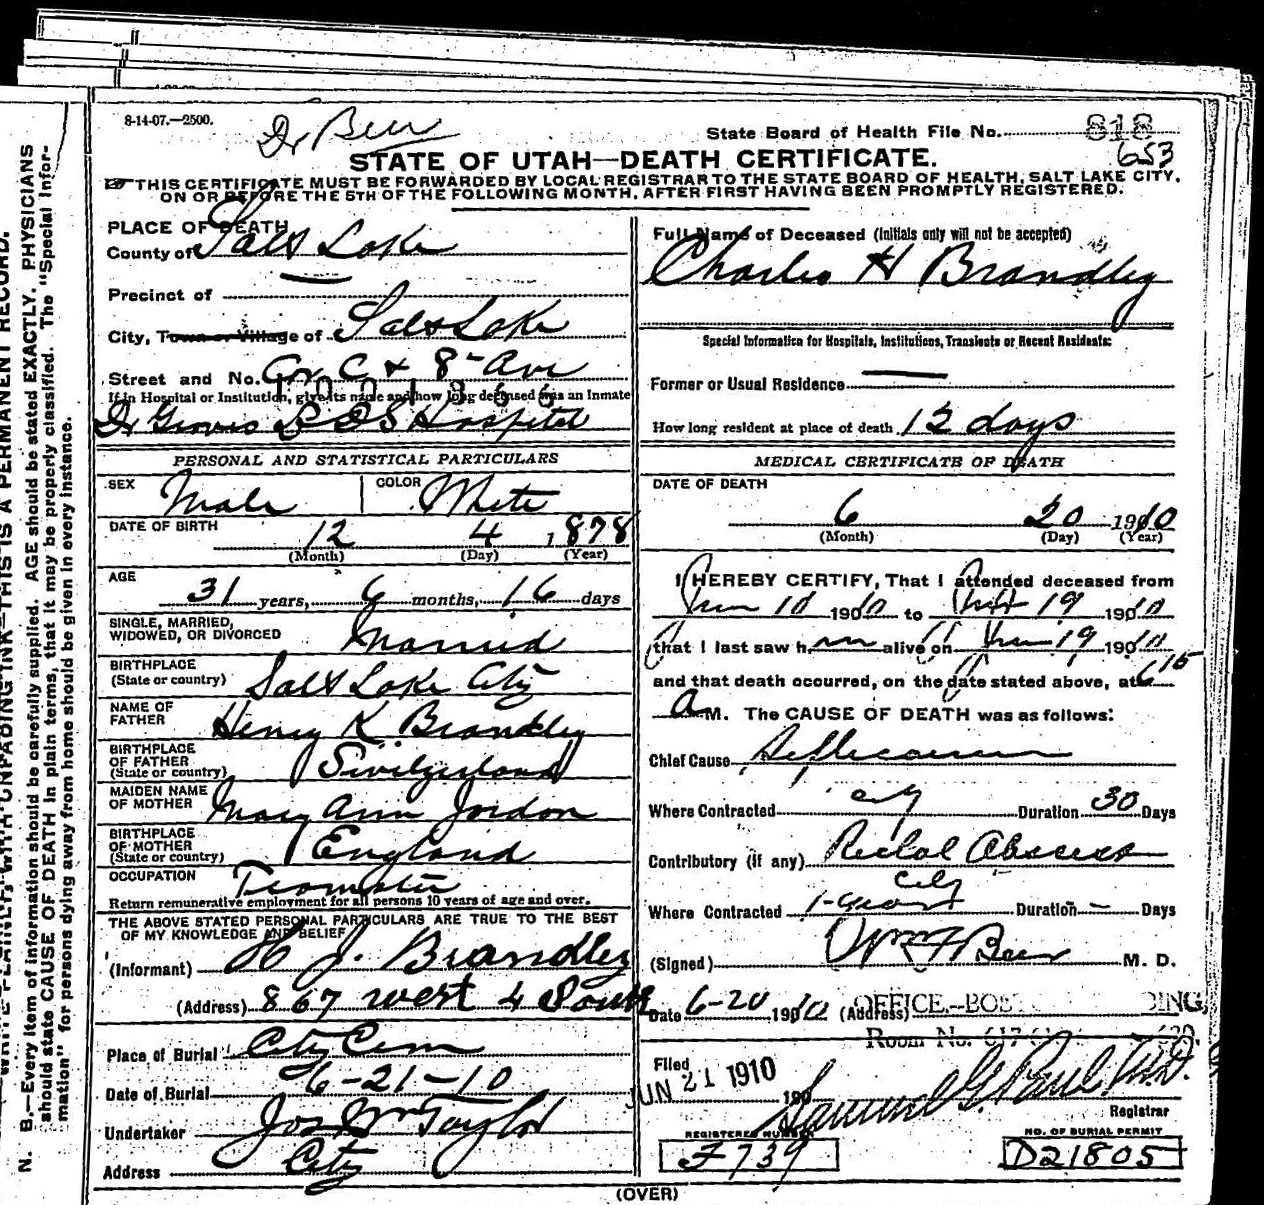 8-14-07.—2500.
Dr Beer
State Board of Health File No. 818
653
STATE OF UTAH—DEATH CERTIFICATE.
THIS CERTIFICATE MUST BE FORWARDED BY LOCAL REGISTRAR TO THE STATE BOARD OF HEALTH, SALT LAKE CITY,
ON OR BEFORE THE 5TH OF THE FOLLOWING MONTH, AFTER FIRST HAVING BEEN PROMPTLY REGISTERED.
PLACE OF DEATH
County of Salt Lake
Precinct of
City, Town or Village of Salt Lake
Street and No. Cor C & 8- Ave
If in Hospital or Institution, give its name and how long deceased was an Inmate
Dr Groves LDS Hospital
PERSONAL AND STATISTICAL PARTICULARS
SEX Male COLOR White
DATE OF BIRTH 12 4 1878
(Month) (Day) (Year)
AGE
31 years, 6 months, 16 days
SINGLE, MARRIED,
WIDOWED, OR DIVORCED Married
BIRTHPLACE
(State or country) Salt Lake City
NAME OF
FATHER Henry K Brandley
BIRTHPLACE
OF FATHER
(State or country) Switzerland
MAIDEN NAME
OF MOTHER Mary Ann Jordon
BIRTHPLACE
OF MOTHER
(State or country) England
OCCUPATION Teamster
Return remunerative employment for all persons 10 years of age and over.
THE ABOVE STATED PERSONAL PARTICULARS ARE TRUE TO THE BEST
OF MY KNOWLEDGE AND BELIEF
(Informant) H J. Brandley
(Address) 867 west 4 South
Place of Burial City Cem
Date of Burial 6-21-10
Undertaker Jos Wm Taylor
Address City
Full Name of Deceased (Initials only will not be accepted)
Charles H Brandley
Special Information for Hospitals, Institutions, Transients or Recent Residents:
Former or Usual Residence
How long resident at place of death 12 days
MEDICAL CERTIFICATE OF DEATH
DATE OF DEATH
6 20 1910
(Month) (Day) (Year)
I HEREBY CERTIFY, That I attended deceased from
June 10 1910 to 19 1910
that I last saw him alive on June 19 1910
and that death occurred, on the date stated above, at 6 15
A M. The CAUSE OF DEATH was as follows:
Chief Cause Septicaemia
Where Contracted City Duration 30 Days
Contributory (if any) Rectal Abscess
City
Where Contracted 1-year Duration - Days
(Signed) Wm F Beer M. D.
Date 6-20 1910 (Address) OFFICE.-BOS DING,
Room No. 617
Filed
JUN 21 1910
190
Samuel G. Paul M.D.
Registrar
REGISTERED NUMBER
F 739
NO. OF BURIAL PERMIT
D21805
(OVER)
N. B.—Every item of information should be carefully supplied. AGE should be stated EXACTLY. PHYSICIANS
should state CAUSE OF DEATH in plain terms, that it may be properly classified. The "Special Infor-
mation" for persons dying away from home should be given in every instance.